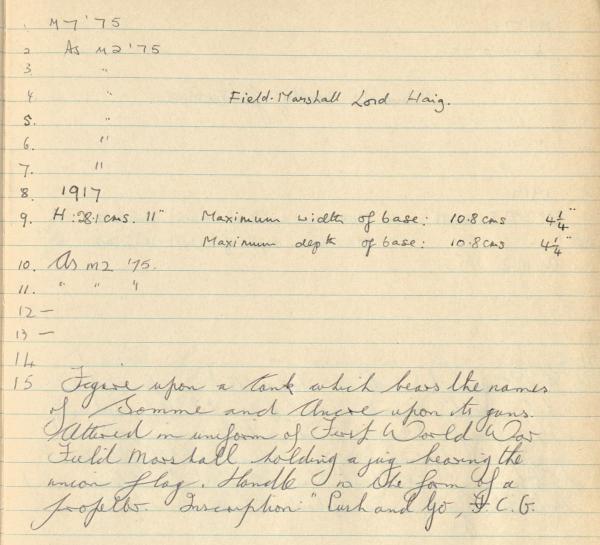 1. M7 '75
2 As M2 '75
3. "
4 " Field-Marshall Lord Haig.
5. "
6. "
7. "
8. 1917
9. H: 28.1 cms. 11" Maximum width of base: 10.8 cms 4¼"
Maximum depth of base: 10.8 cms 4¼"
10. As M2 '75.
11. " " "
12 –
13 –
14
15 Figure upon a tank which bears the names
of Somme and Ancre upon its guns.
Attired in uniform of First World War
Field Marshall holding a jug bearing the
union flag. Handle in the form of a
propellor. Inscription: "Push and Go, F. C. G.